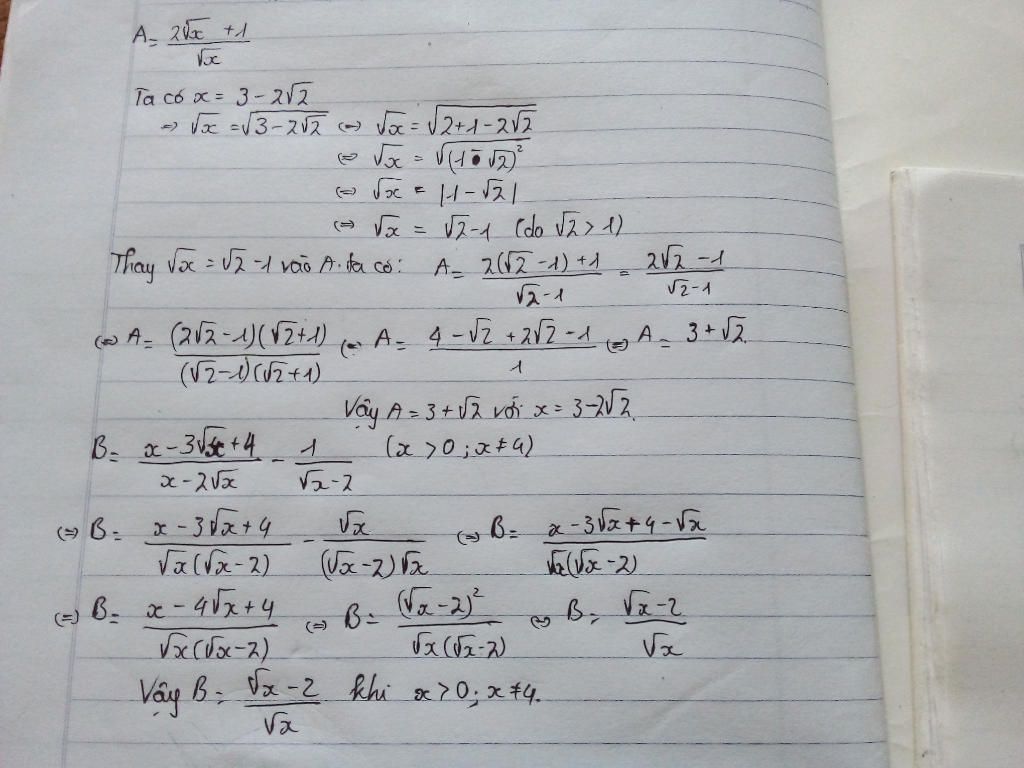 A = (2√x + 1)/√x
Ta có x = 3 - 2√2
⇒ √x = √(3 - 2√2) ⇔ √x = √(2 + 1 - 2√2)
⇔ √x = √((1 - √2)²)
⇔ √x = |1 - √2|
⇔ √x = √2 - 1 (do √2 > 1)
Thay √x = √2 - 1 vào A. ta có: A = (2(√2 - 1) + 1)/(√2 - 1) = (2√2 - 1)/(√2 - 1)
⇔ A = ((2√2 - 1)(√2 + 1))/((√2 - 1)(√2 + 1)) ⇔ A = (4 - √2 + 2√2 - 1)/1 ⇔ A = 3 + √2.
Vậy A = 3 + √2 với x = 3 - 2√2.
B = (x - 3√x + 4)/(x - 2√x) - 1/(√x - 2) (x > 0 ; x ≠ 4)
⇔ B = (x - 3√x + 4)/(√x(√x - 2)) - √x/((√x - 2)√x) ⇔ B = (x - 3√x + 4 - √x)/(√x(√x - 2))
⇔ B = (x - 4√x + 4)/(√x(√x - 2)) ⇔ B = (√x - 2)²/(√x(√x - 2)) ⇔ B = (√x - 2)/√x
Vậy B = (√x - 2)/√x khi x > 0 ; x ≠ 4.